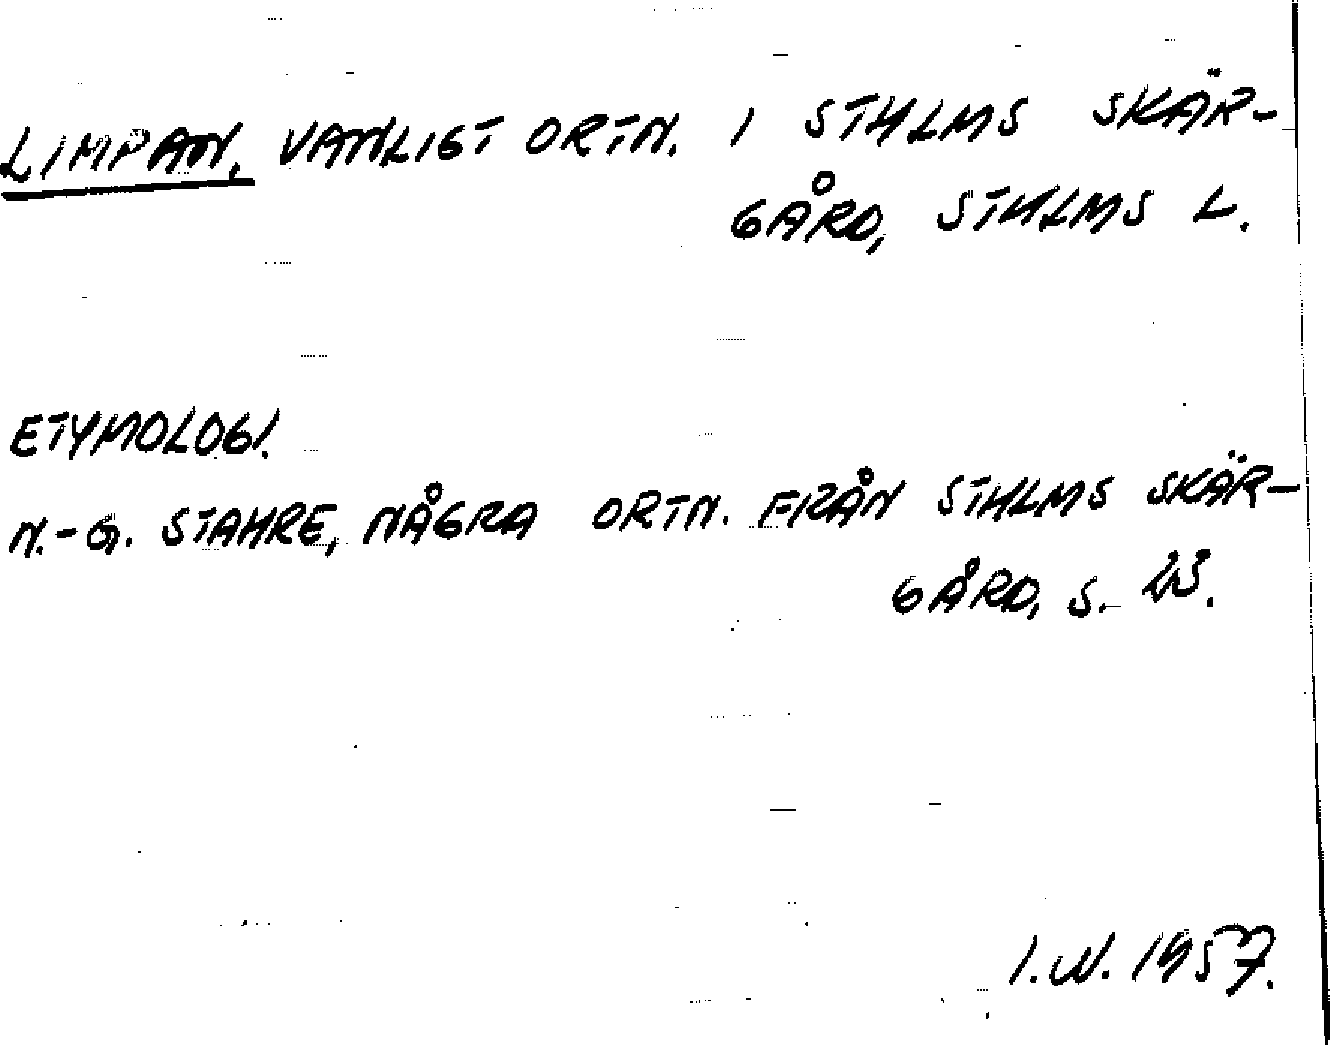 LIMPAN. VANLIGT ORTN. I STHLMS SKÄR-
GÅRD, STHLMS L.
ETYMOLOGI.
N.-G. STAHRE, NÅGRA ORTN. FRÅN STHLMS SKÄR-
GÅRD, S.
I.W. 1957.